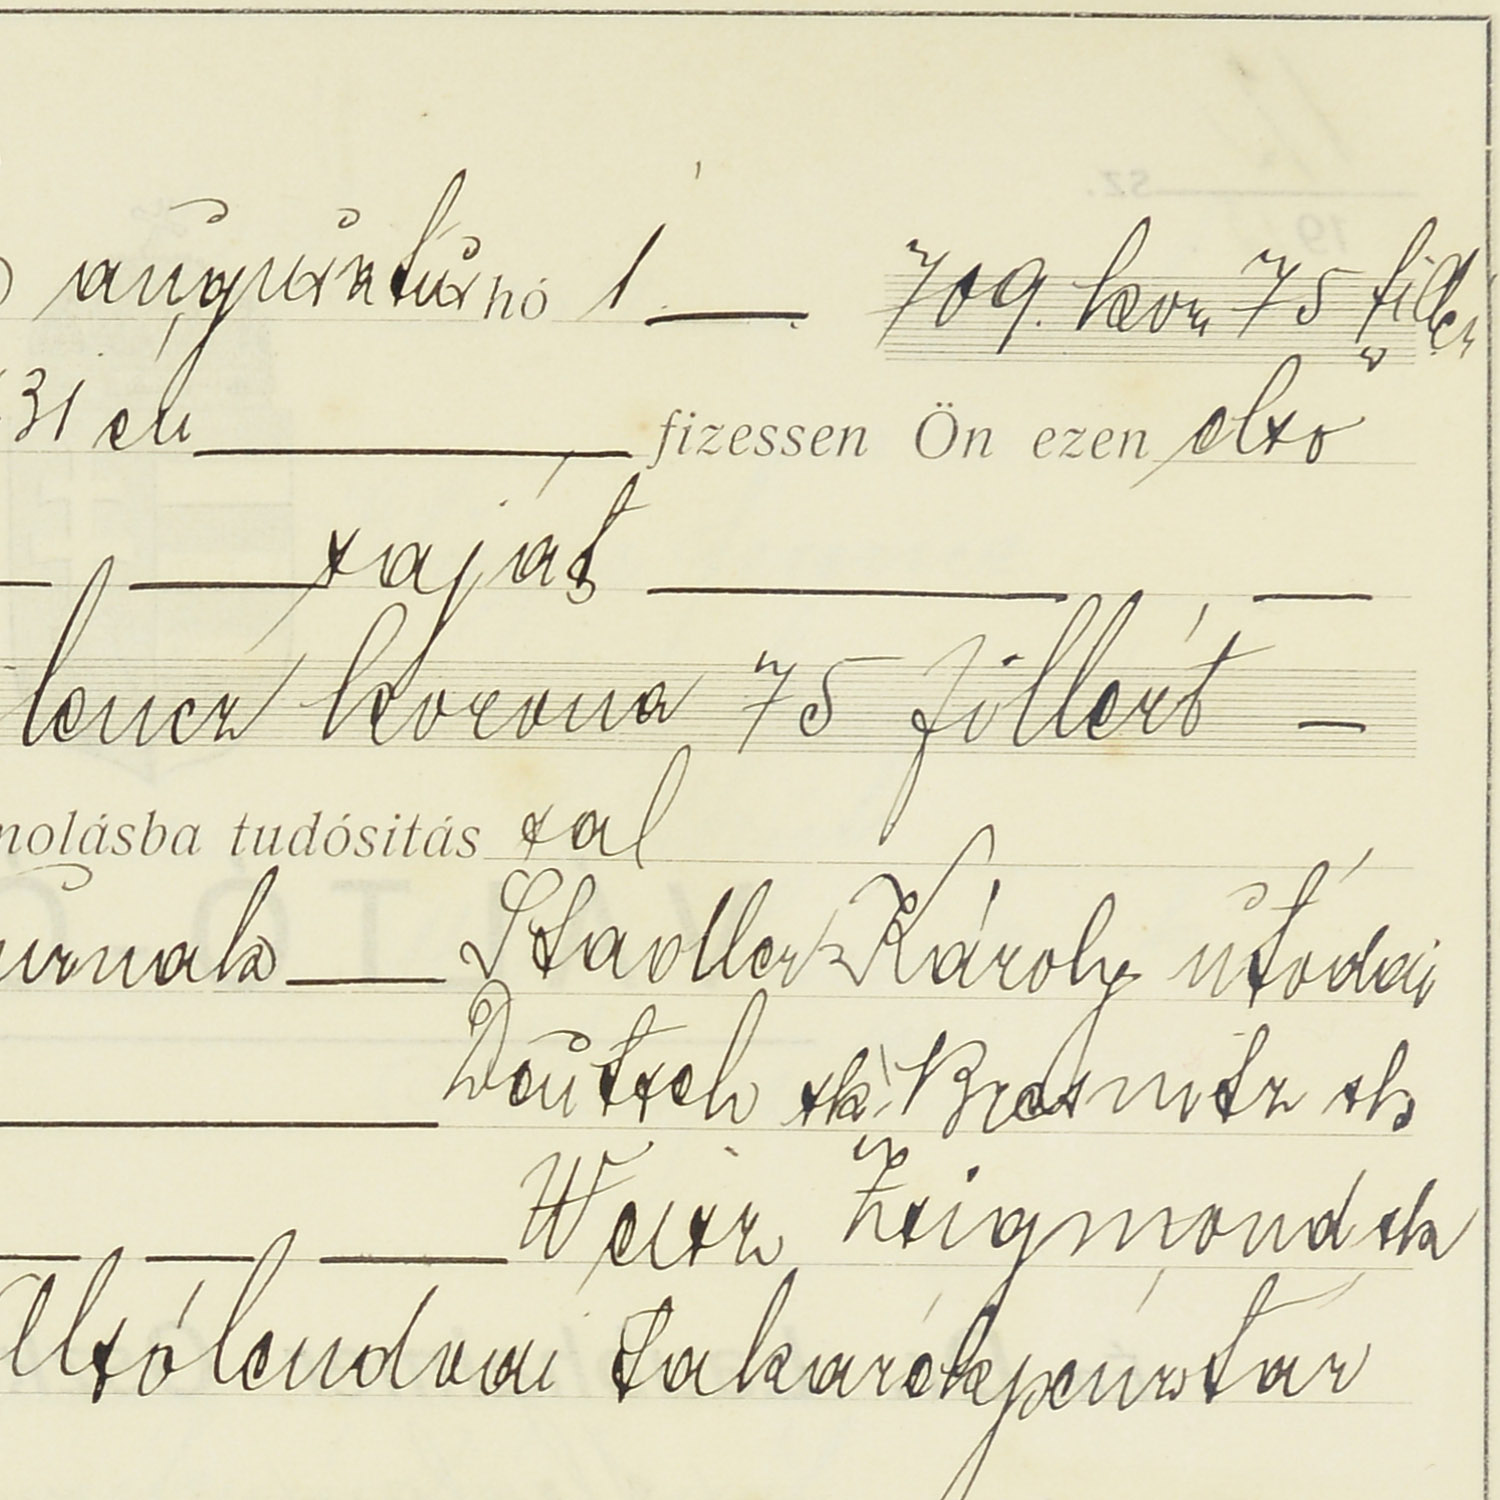 augusztus hó 1. 709. kor. 75 fillér
31 én fizessen Ön ezen első
saját
lencz korona 75 fillért
molásba tudósitás sal
urnak Stadler Károly utódai
Deutsch sk. Bresnitz sk
Weisz Zsigmond sk
Alsólendvai takarékpénztár